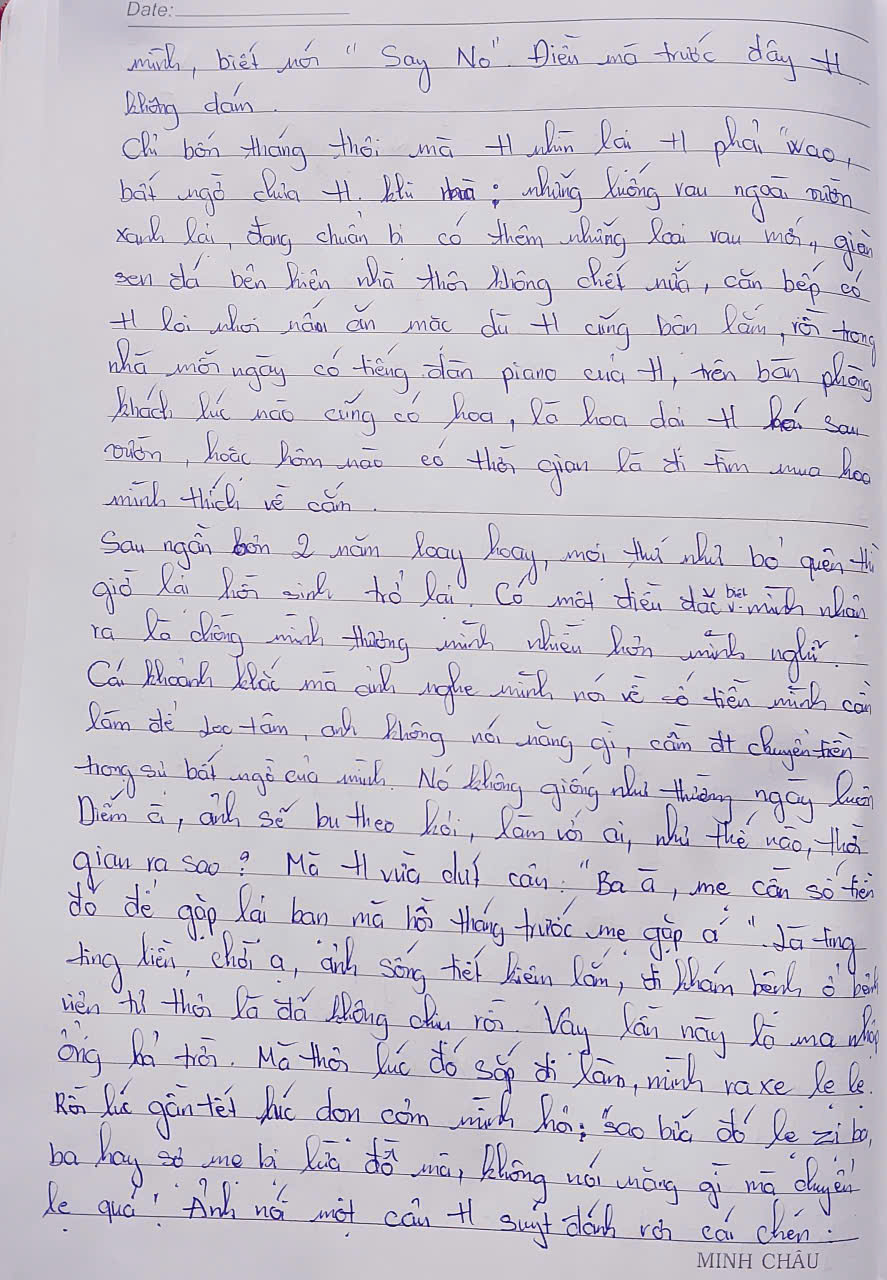 Date:
mình, biết nói "Say No" Điều mà trước đây H
không dám.
Chỉ bốn tháng thôi mà H nhìn lại H phải "wao,
bất ngờ chưa H. khi mà: những luống rau ngoài vườn
xanh lại, đang chuẩn bị có thêm những loại rau mới, giàn
sen đá bên hiên nhà thôi không chết nữa, căn bếp có
H lôi nhôi nấu ăn mặc dù H cũng bận lắm, rồi trong
nhà mỗi ngày có tiếng đàn piano của H, trên bàn phòng
khách lúc nào cũng có hoa, là hoa dại H hái sau
vườn, hoặc hôm nào có thời gian là đi tìm mua hoa
mình thích về cắm.
Sau ngần bốn 2 năm loay hoay, mọi thứ như bỏ quên thì
giờ lại hồi sinh trở lại. Có một điều đặc biệt mình nhận
ra là chồng mình thương mình nhiều hơn mình nghĩ.
Cái khoảnh khắc mà anh nghe mình nói về số tiền mình cần
làm để đọc tâm, anh không nói năng gì, cầm đt chuyển tiền
trong sự bất ngờ của mình. Nó không giống như thường ngày luôn
Diễm à, ảnh sẽ bu theo hỏi, làm với ai, như thế nào, thời
gian ra sao? Mà H vừa dứt câu: "Ba à, mẹ cần số tiền
đó để gặp lại bạn mà hồi tháng trước mẹ gặp á". Là ting
ting liền, chời ạ, ảnh sống tiết kiệm lắm, đi khám bệnh ở bệnh
viện tư thôi là đã không chịu rồi. Vậy lần này là ma nhập
ông hả trời. Mà thôi lúc đó sắp đi làm, mình ra xe lẹ lẹ.
Rồi lúc gần tết lúc dọn cơm mình hỏi: "sao bữa đó lẹ zị ba,
ba hay sợ mẹ bị lừa đồ mà, không nói năng gì mà chuyển
lẹ quá! Ảnh nói một câu H suýt đánh rơi cái chén:
MINH CHÂU